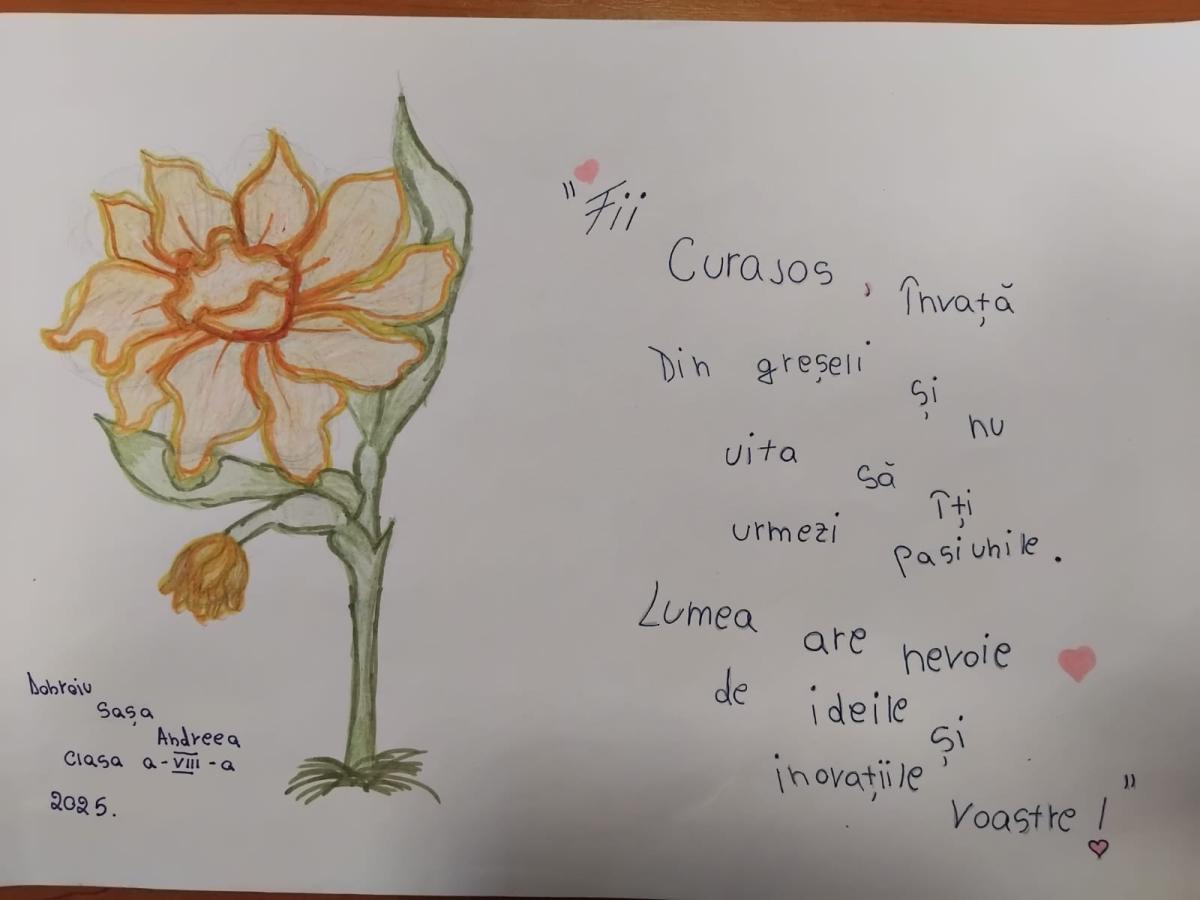 "Fii
Curajos , Învață
Din greșeli și nu
vita să îți
urmezi pasiunile.
Lumea are nevoie
de ideile și
inovațiile voastre!"
Dobroiu
Sașa
Andreea
Clasa a-VIII-a
2025.